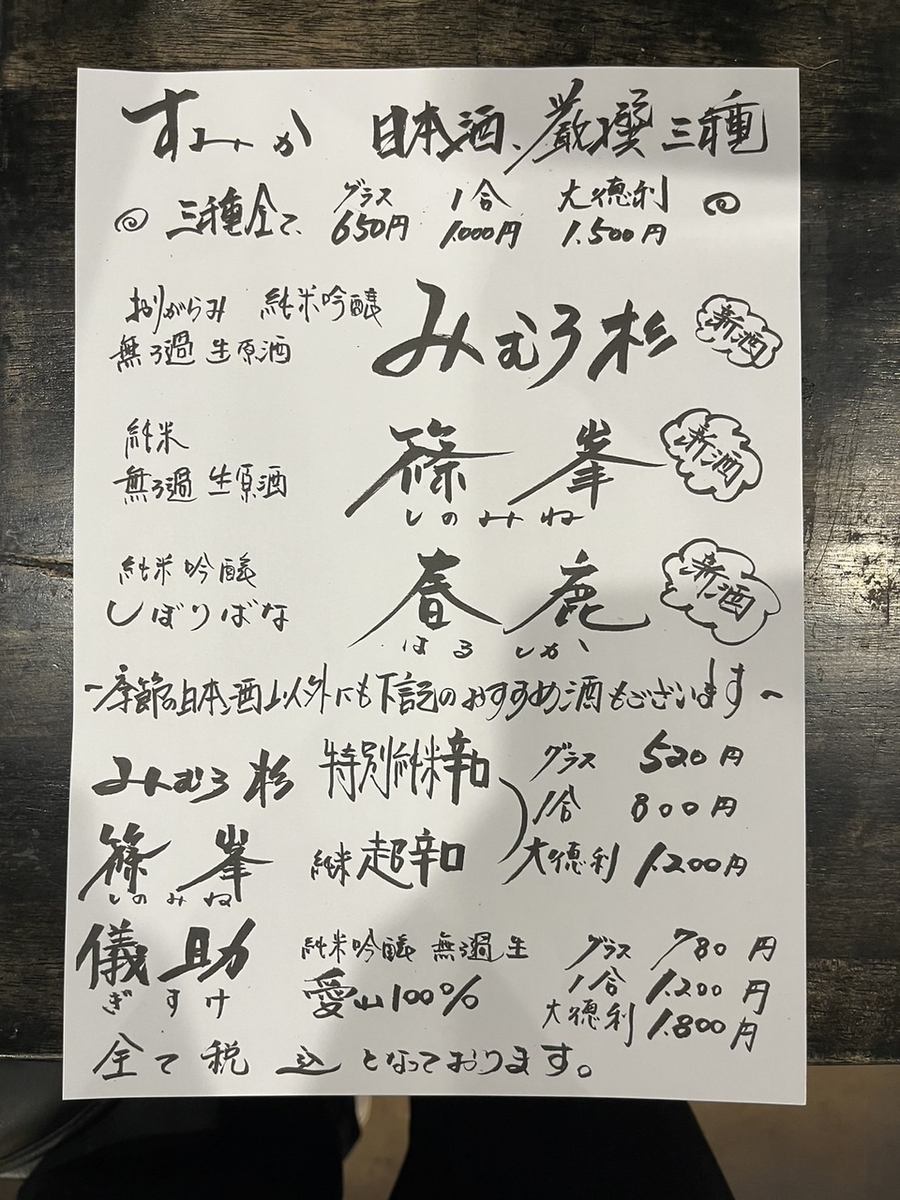 すみか 日本酒、厳撰三種
三種全て、 グラス 650円 1合 1.000円 大徳利 1.500円
おりがらみ 純米吟醸
無ろ過 生原酒
みむろ杉 新酒
純米
無ろ過 生原酒
篠峯 新酒
しのみね
純米吟醸
しぼりばな
春鹿 新酒
はるしか
~季節の日本酒以外にも下記のおすすめ酒もございます~
みむろ杉 特別純米辛口
篠峯 純米超辛口
しのみね
グラス 520円
1合 800円
大徳利 1.200円
儀助 純米吟醸 無ろ過生
ぎすけ 愛山100%
グラス 780円
1合 1.200円
大徳利 1.800円
全て税込となっております。